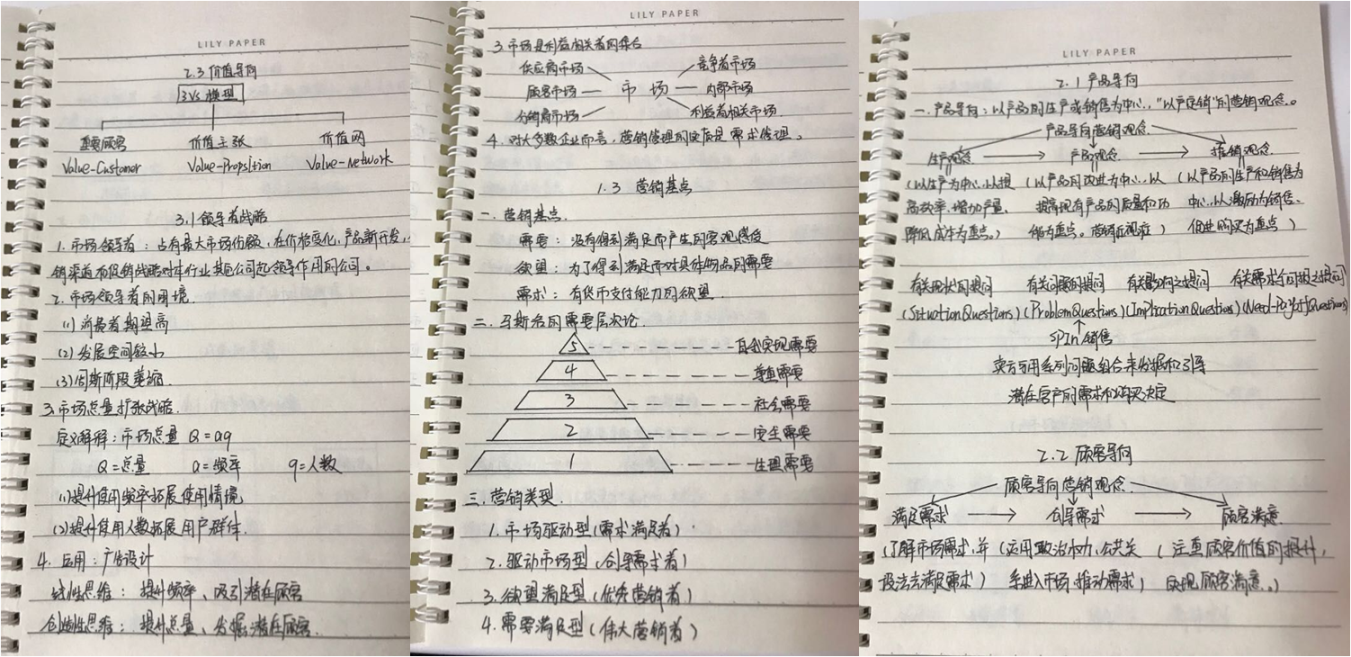 LILY PAPER
2.3 价值导向
3Vs 模型
重要顾客 价值主张 价值网
Value-Customer Value-Propsltion Value-Network
3.1 领导者战略
1. 市场领导者：占有最大市场份额，在价格变化，产品新开发，
销渠道和促销战略对本行业其他公司起领导作用的公司。
2. 市场领导者的困境
(1) 消费者期望高
(2) 发展空间较小
(3) 创新阶段萎缩
3. 市场总量扩张战略
定义解释：市场总量 Q=aq
Q=总量 a=频率 q=人数
(1) 提升使用频率拓展使用情境
(2) 提升使用人数拓展用户群体
4. 应用：广告设计
线性思维：提升频率、吸引潜在顾客
创造性思维：提升总量、发掘潜在顾客
LILY PAPER
3. 市场是利益相关者的集合
供应商市场 竞争者市场
顾客市场 市场 内部市场
分销商市场 利益者相关市场
4. 对大多数企业而言，营销管理的实质是需求管理。
1.3 营销基点
一. 营销基点
需要：没有得到满足而产生的客观感受
欲望：为了得到满足而对具体物品的需要
需求：有货币支付能力的欲望
二. 马斯洛的需要层次论
5 自我实现需要
4 尊重需要
3 社会需要
2 安全需要
1 生理需要
三. 营销类型
1. 市场驱动型(需求满足者)
2. 驱动市场型(创导需求者)
3. 欲望满足型(优秀营销者)
4. 需要满足型(伟大营销者)
LILY PAPER
2.1 产品导向
一. 产品导向：以产品的生产或销售为中心，"以产促销"的营销观点。
产品导向营销观念
生产观念 产品观念 推销观念
(以生产为中心，以提 (以产品的改进为中心，以 (以产品的生产和销售为
高效率，增加产量、 提高现有产品的质量和功 中心，以激励为销售，
降低成本为重点。) 能为重点。营销近视症) 促进购买为重点)
有关现状的提问 有关问题的提问 有关影响之提问 有关需求与回报之提问
(Situation Questions) (Problem Questions) (Implication Questions) (Need-Payoff Questions)
SPIn 销售
卖方可用系列问题组合来发掘和引导
潜在客户的需求和购买决定
2.2 顾客导向
顾客导向营销观念
满足需求 创导需求 顾客满意
(了解市场需求，并 (运用政治权力、公共关 (注重顾客价值的提升，
设法去满足需求) 系进入市场，推动需求) 实现顾客满意。)